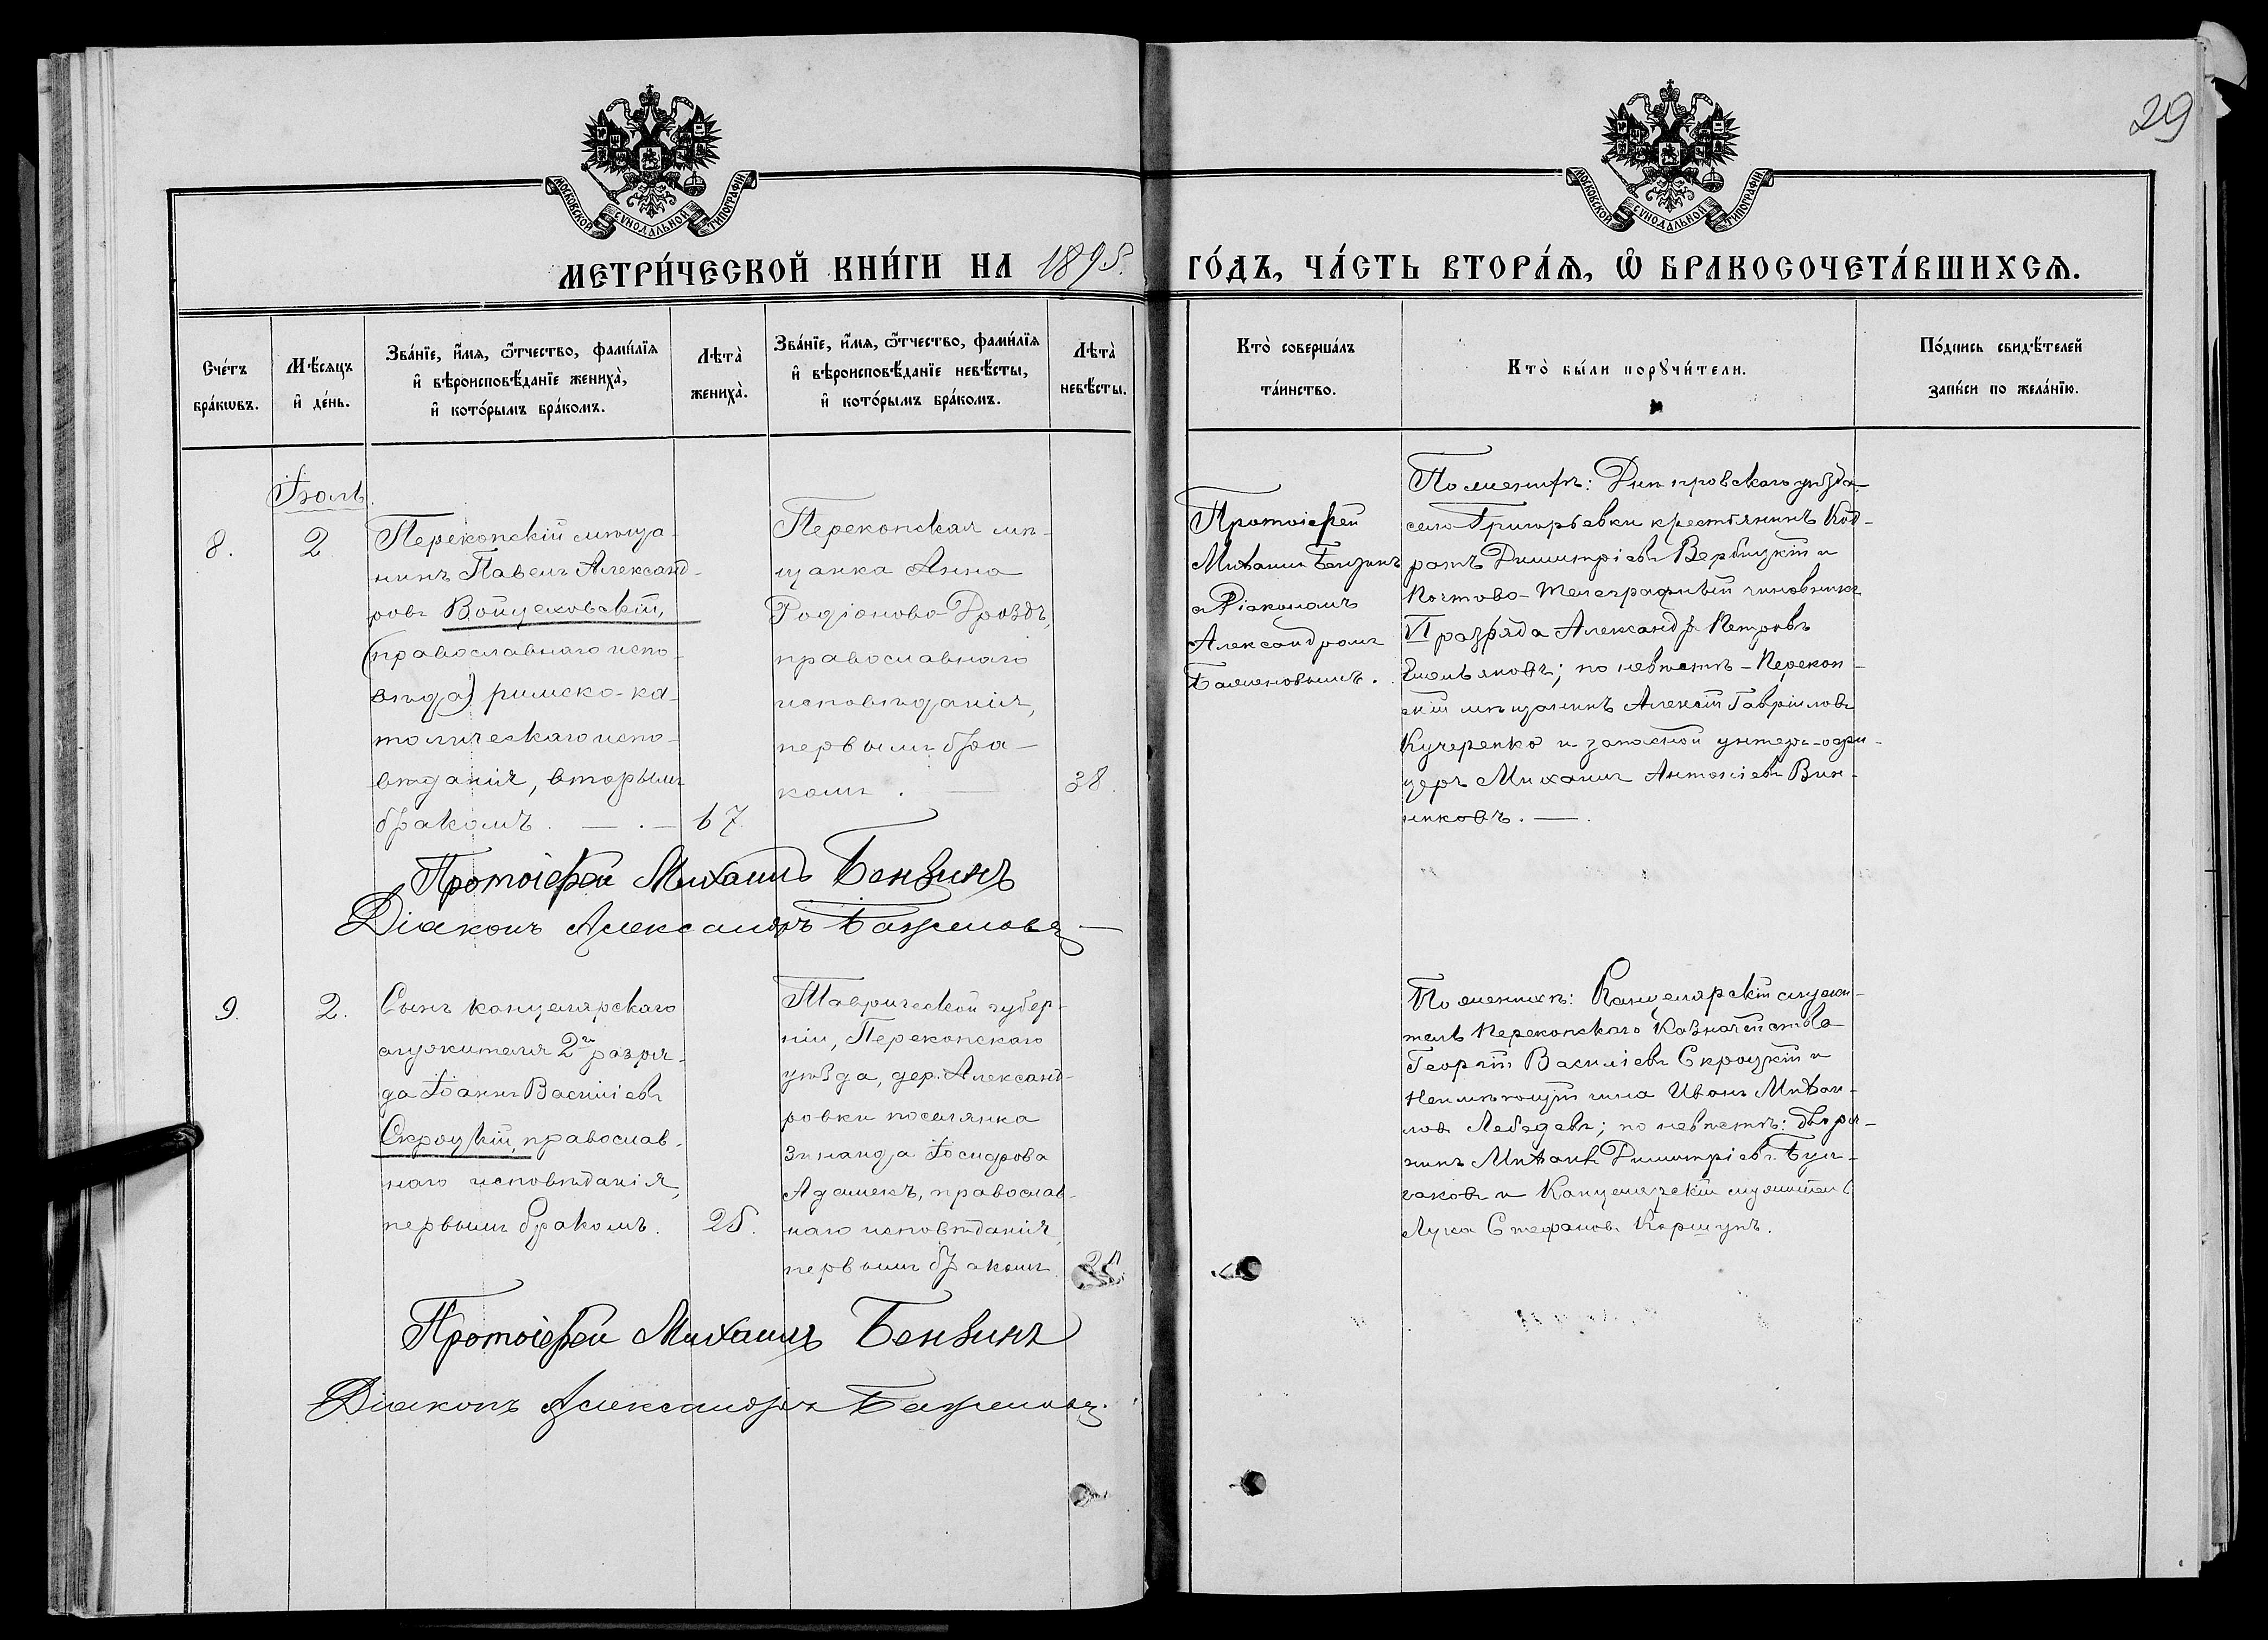 29
МОСКОВСКОЙ СѴНОДАЛЬНОЙ ТИПОГРАФІИ
МОСКОВСКОЙ СѴНОДАЛЬНОЙ ТИПОГРАФІИ
МЕТРИ́ЧЕСКОЙ КНИ́ГИ НА 1895.
ГО́ДЪ, ЧА́СТЬ ВТОРА́Ѧ, Ѽ БРАКОСОЧЕТА́ВШИХСѦ.
Сче́тъ
бра́кѡвъ.
Мѣ́сѧцъ
и҆ де́нь.
Зва́нїе, и҆́мѧ, ѻ҆́тчество, фами́лїѧ
и҆ вѣроисповѣ́данїе жениха̀,
и҆ кото́рымъ бра́комъ.
Лѣта̀
жениха̀.
Зва́нїе, и҆́мѧ, ѻ҆́тчество, фами́лїѧ
и҆ вѣроисповѣ́данїе невѣ́сты,
и҆ кото́рымъ бра́комъ.
Лѣта̀
невѣ́сты.
Кто̀ соверша́лъ
та́инство.
Кто̀ бы́ли порꙋчи́тели.
По́дпись свидѣ́телей
запи́си по жела́нїю.
Іюль.
8.
2
Перекопскій мѣща-
нинъ Павелъ Александ-
ровъ Войцеховскій,
(православнаго испо-
вѣда) римско-ка-
толическаго испо-
вѣданія, вторымъ
бракомъ. — . —
67
Перекопская мѣ-
щанка Анна
Родіонова Дроздъ,
православнаго
исповѣданія,
первымъ бра-
комъ. —
38.
Протоіерей
Михаилъ Бензинъ
а Діакономъ
Александромъ
По женихѣ: Днѣпровскаго уѣзда
село Григорьевки крестьянинъ Код-
ратъ Димитріевъ Вербицкій и
Почтово-Телеграфный чиновникъ
VI разряда Александръ Петровъ
Емельяновъ; по невѣстѣ - Перекоп-
скій мѣщанинъ Алексій Гавріиловъ
Кучеренко и запасной унтеръ-офи-
церъ Михаилъ Антоніевъ Вин-
никовъ. —.
Протоіерей Михаилъ Бензинъ
Діаконъ Александръ
9.
2.
Сынъ канцелярскаго
служителя 2го разря-
да Іоаннъ Василіевъ
Скроцкій, православ-
наго исповѣданія,
первымъ бракомъ.
25.
Таврической губер-
ніи, Перекопскаго
уѣзда, дер. Александ-
ровки поселянка
Зинаида Іосифова
Адамекъ, православ-
наго исповѣданія,
первымъ бракомъ.
По женихѣ: Канцелярскій служи-
тель Перекопскаго Казначейства
Георгій Василіевъ Скроцкій и
Неимѣющій чина Иванъ Михаи-
ловъ Лебедевъ; по невѣстѣ: дворя-
нинъ Михаилъ Димитріевъ Бул-
гаковъ и Канцелярскій служитель
Лука Стефановъ Коршунъ.
Протоіерей Михаилъ Бензинъ
Діаконъ Александръ